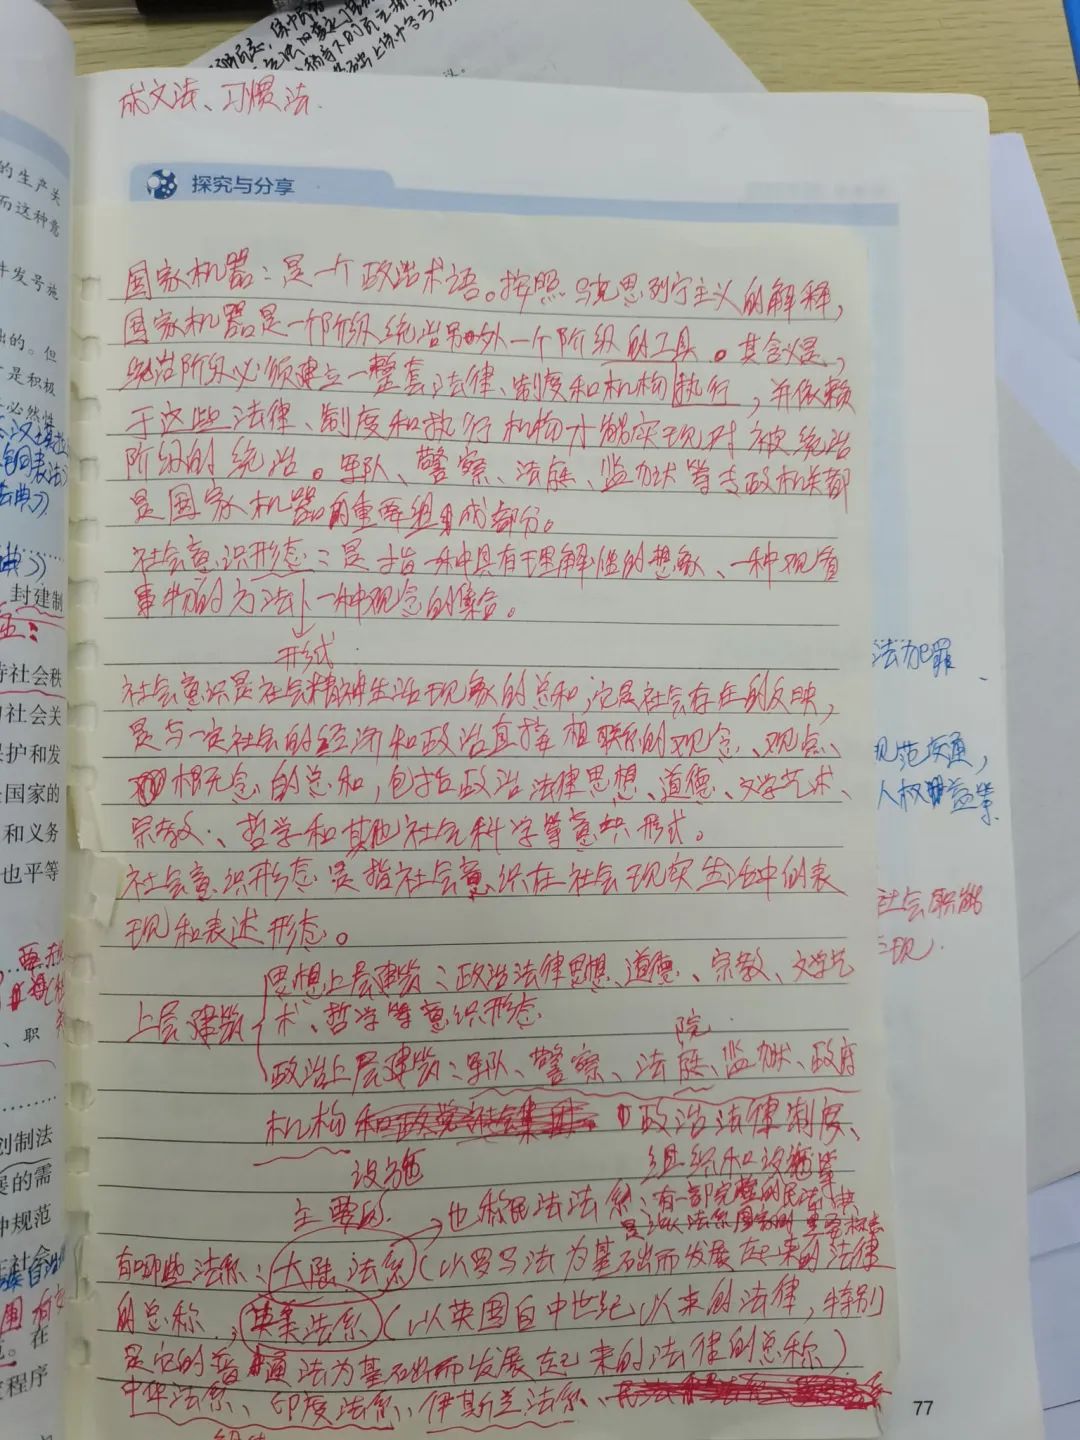 成文法、习惯法.
探究与分享
国家机器：是一个政治术语。按照马克思列宁主义的解释，
国家机器是一个阶级统治另外一个阶级的工具。其含义是，
统治阶级必须建立一整套法律、制度和机构执行，并依赖
于这些法律、制度和执行机构才能实现对被统治
阶级的统治。军队、警察、法庭、监狱等专政机关都
是国家机器的重要组成部分。
社会意识形态：是指一种具有理解性的想象、一种观看
事物的方法 一种观念的集合。
形式
社会意识是社会精神生活现象的总和，它是社会存在的反映，
是与一定社会的经济和政治直接相联系的观念、观点、
概念的总和，包括政治法律思想、道德、文学艺术、
宗教、哲学和其他社会科学等意识形式。
社会意识形态是指社会意识在社会现实生活中的表
现和表述形态。
思想上层建筑：政治法律思想、道德、宗教、文学艺
上层建筑
术、哲学等意识形态
院
政治上层建筑：军队、警察、法庭、监狱、政府
机构 政治法律制度、
设施 组织和设施等
主要的 也称民法法系：有一部完整的民法典
是该法系国家的重要标志
有哪些法系：大陆法系（以罗马法为基础而发展起来的法律
的总称，英美法系（以英国自中世纪以来的法律，特别
是它的普通法为基础而发展起来的法律的总称）
中华法系、印度法系、伊斯兰法系、
77
法犯罪
规范交通，
人权益等
社会职能
的生产关
而这种意
件发号施
出的。但
是积极
必然性
封建制
持社会秩
社会关
护和发
国家的
和义务
也平等
、职
创制法
展的需
种规范
社会
在
程序